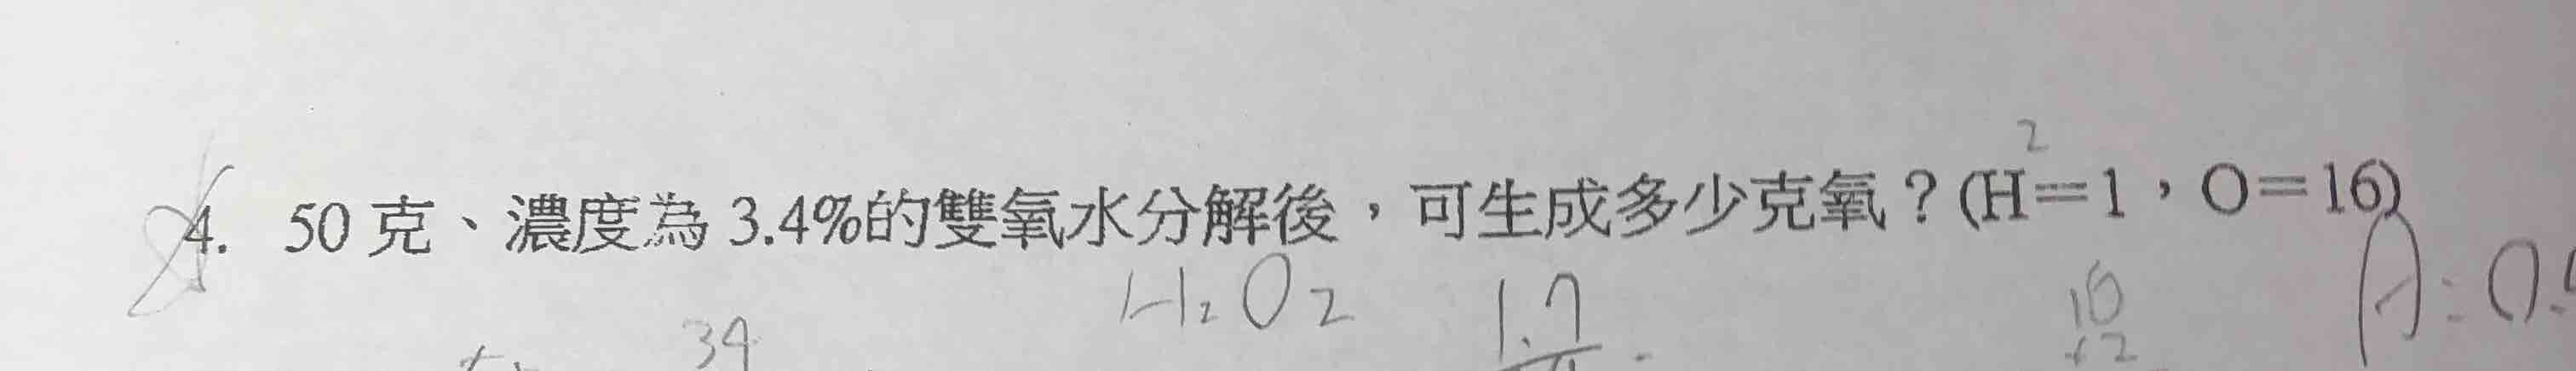 4. 50 克、濃度為 3.4%的雙氧水分解後，可生成多少克氧？(H=1，O=16)
2
H₂O₂
1.7
34